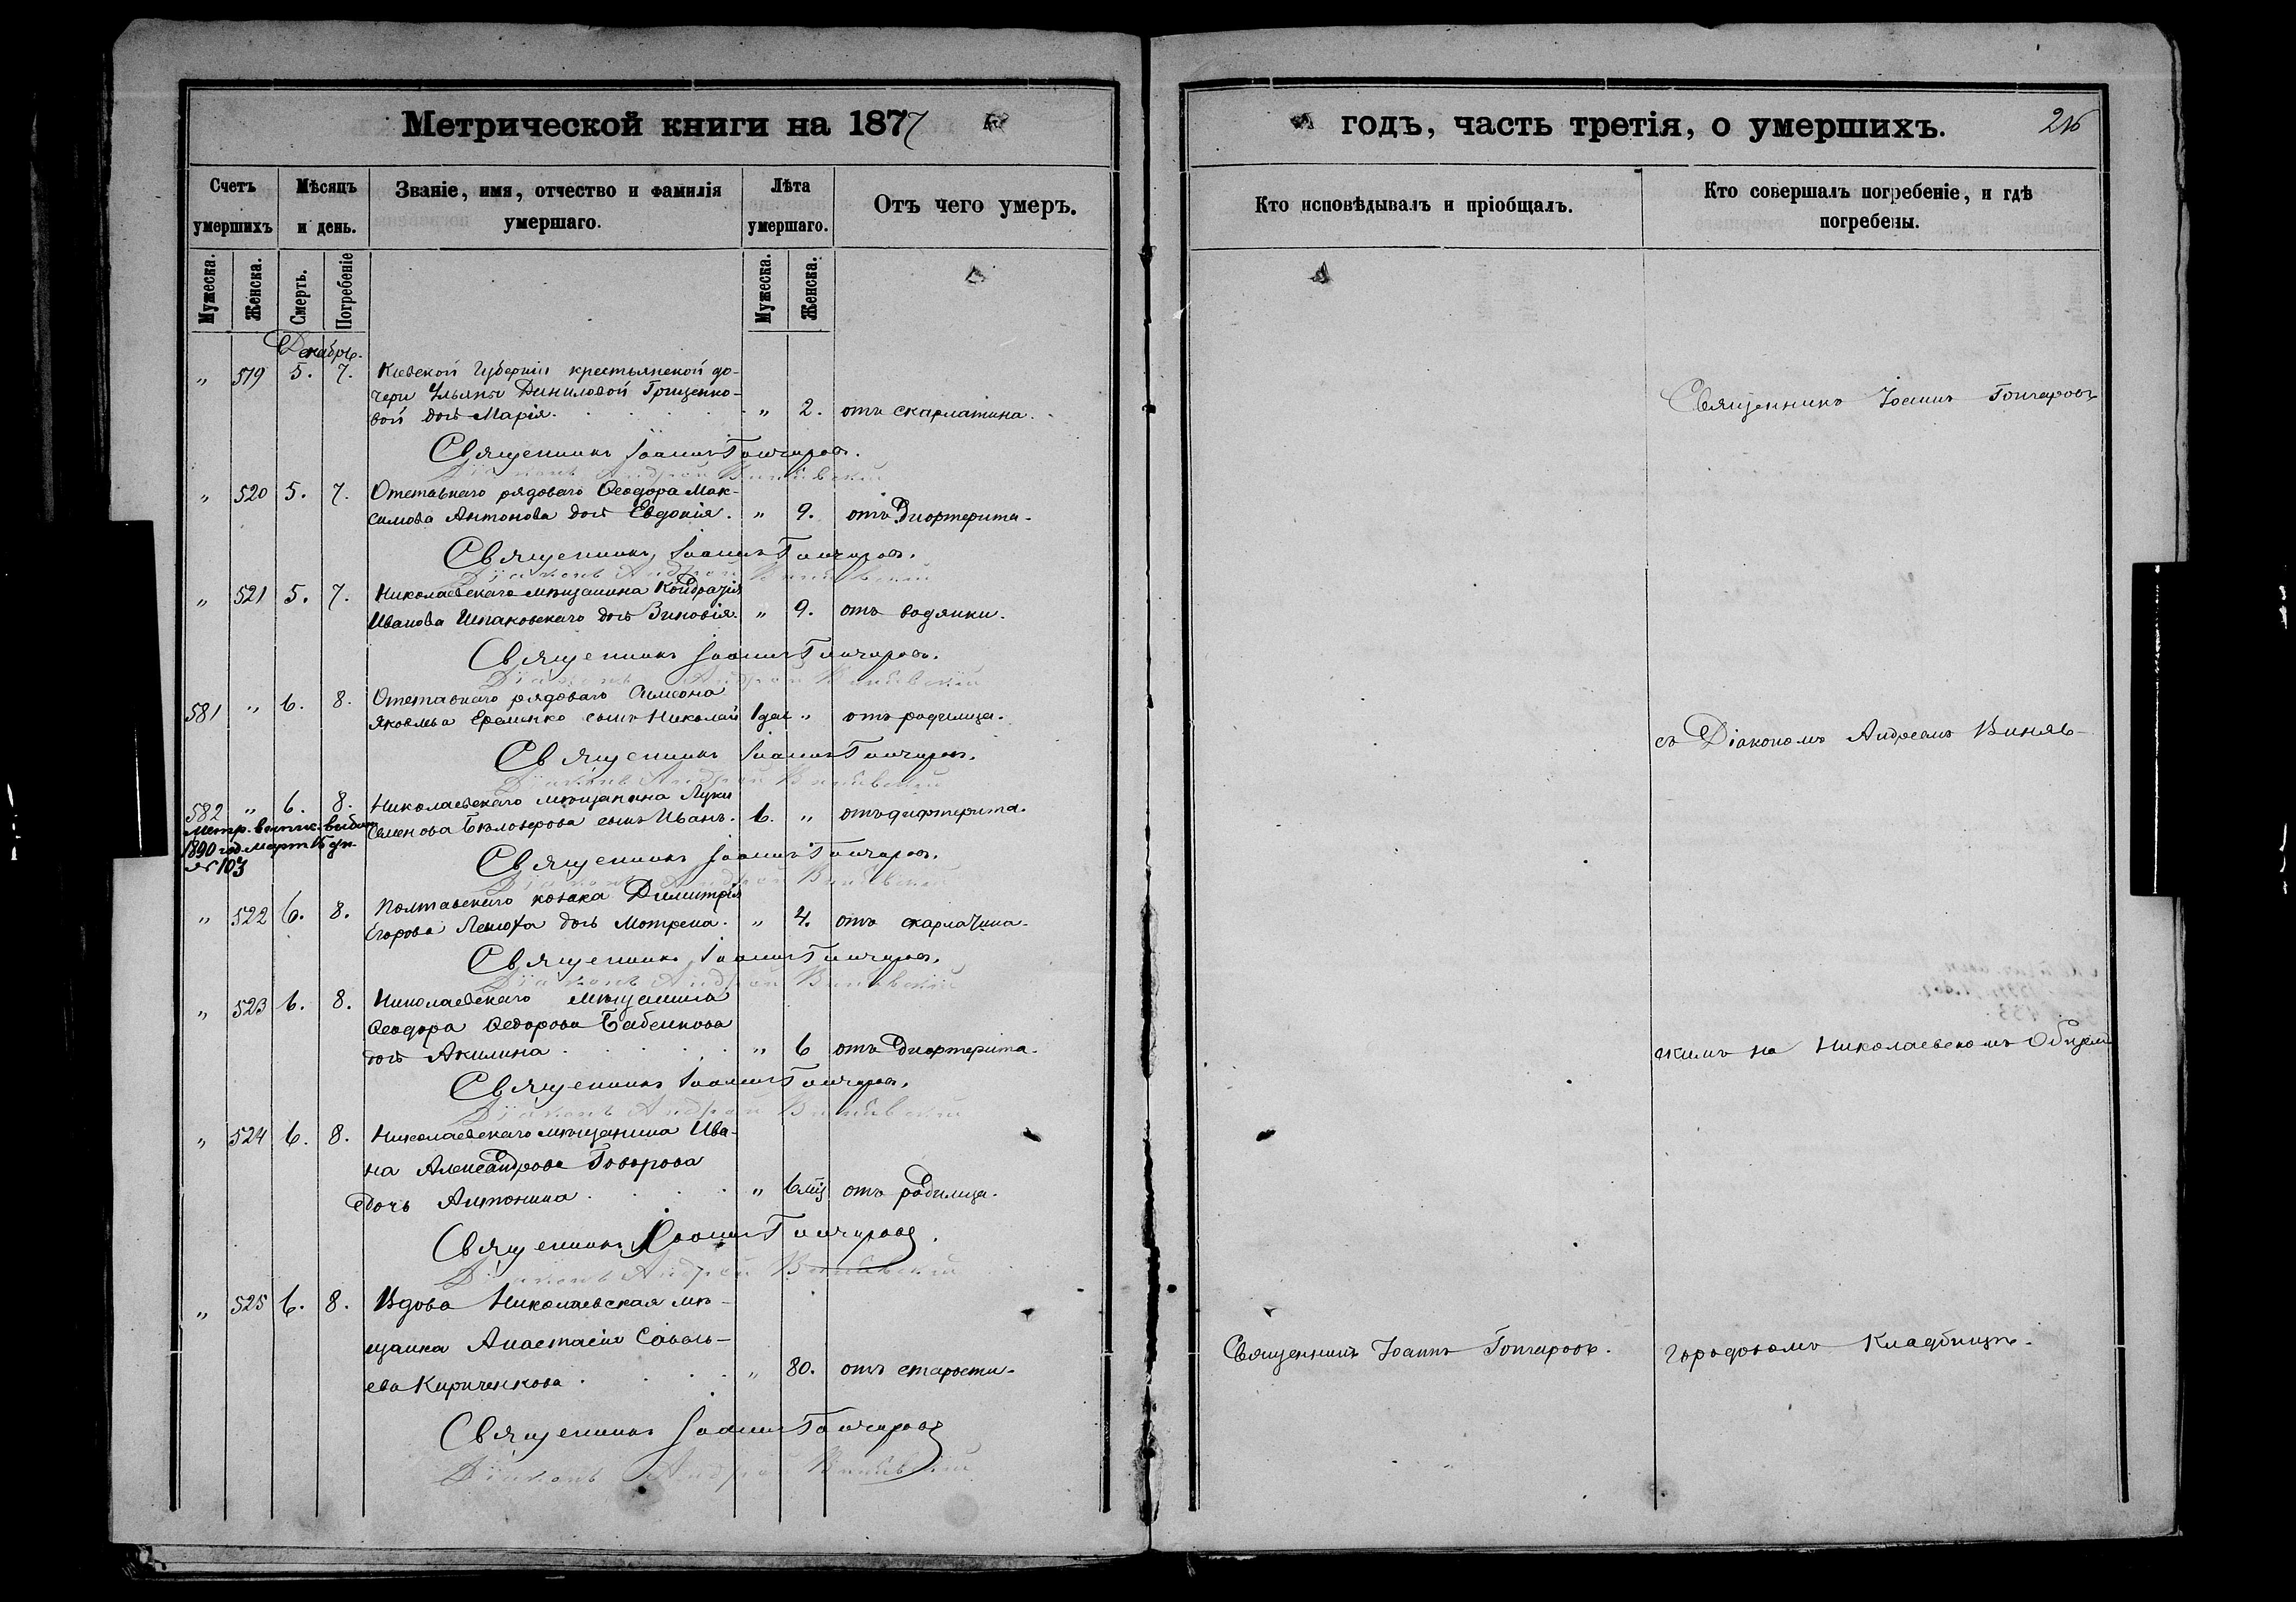 Метрической книги на 1877
Счетъ умершихъ
Мѣсяцъ и день.
Званіе, имя, отчество и фамилія умершаго.
Лѣта умершаго.
Отъ чего умеръ.
Мужеска. Женска. Смерть. Погребеніе Мужеска. Женска.
Декабрь.
" 519 5. 7. Кіевской Губерніи крестьянской до-
чери Ульяны Даниловой Грищенко-
вой дочь Марія. " 2. отъ скарлатина.
Священникъ Іоаннъ Гончаровъ.
Діаконъ Андрей
" 520 5. 7. Отставнаго рядоваго Ѳеодора Мак-
симова Антонова дочь Евдокія. " 9. отъ Дифтерита.
Священникъ Іоаннъ Гончаровъ.
Діаконъ Андрей
" 521 5. 7. Николаевскаго мѣщанина Кондратія
Иванова Шпаковскаго дочь Зиновія. " 9. отъ водянки.
Священникъ Іоаннъ Гончаровъ.
Діаконъ Андрей
581 " 6. 8. Отставнаго рядоваго Симеона
Яковлева Еременко сынъ Николай 1 дня " отъ родимца.
Священникъ Іоаннъ Гончаровъ.
Діаконъ Андрей
582 " 6. 8. Николаевскаго мѣщанина Луки
Семенова Бѣлозерова сынъ Иванъ. 6. " отъ дифтерита.
метр. выпис. выдана
1890 год. март. 15 дн.
№ 103
Священникъ Іоаннъ Гончаровъ.
Діаконъ Андрей
" 522 6. 8. Полтавскаго козака Димитрія
Егорова дочь Мотрена. " 4. отъ скарлатина.
Священникъ Іоаннъ Гончаровъ.
Діаконъ Андрей
" 523 6. 8. Николаевскаго мѣщанина
Ѳеодора Ѳедорова Бабенкова
дочь Акилина " 6 отъ Дифтерита.
Священникъ Іоаннъ Гончаровъ.
Діаконъ Андрей
" 524 6. 8. Николаевскаго мѣщанина Ива-
на Александрова Говорова
дочь Антонина. " 6 мц отъ родимца.
Священникъ Іоаннъ Гончаровъ.
Діаконъ Андрей
" 525 6. 8. Вдова Николаевская мѣ-
щанка Анастасія Саволь-
ева Кириченкова. " 80. отъ старости.
Священникъ Іоаннъ Гончаровъ
Діаконъ Андрей
годъ, часть третія, о умершихъ.
Кто исповѣдывалъ и пріобщалъ.
Кто совершалъ погребеніе, и гдѣ погребены.
Священникъ Іоаннъ Гончаровъ
съ Діакономъ Андреемъ Виняв-
скимъ на Николаевскомъ Общемъ
Священникъ Іоаннъ Гончаровъ.
городскомъ Кладбищѣ.